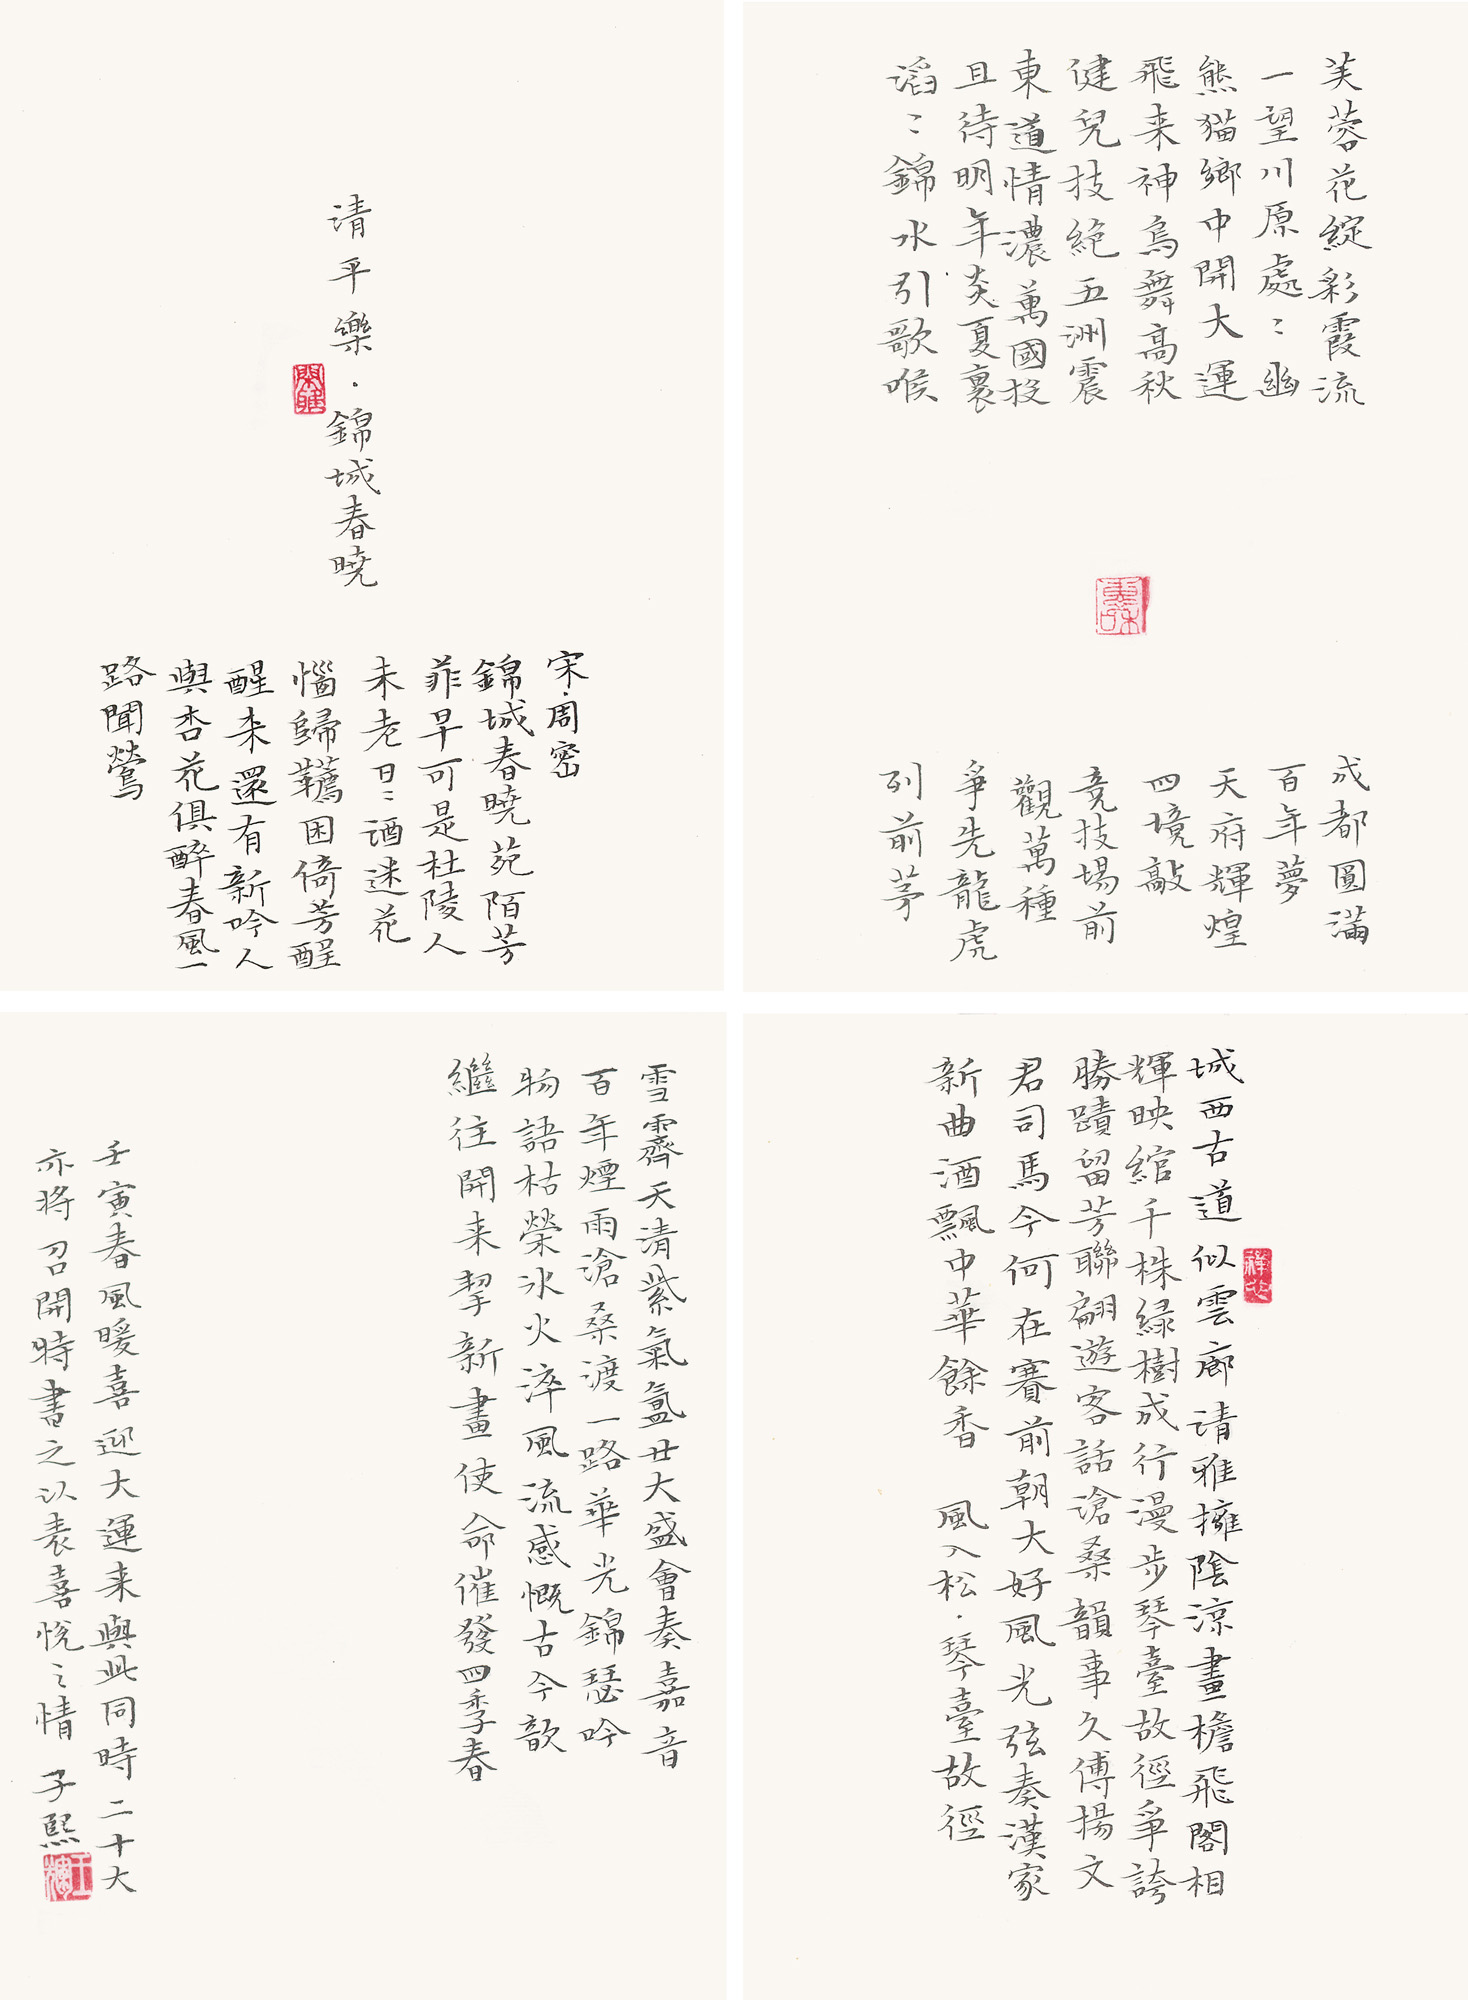 芙蓉花綻彩霞流
一望川原處〻幽
熊猫鄉中開大運
飛来神鳥舞高秋
健兒技絕五洲震
東道情濃萬國投
且待明年炎夏裏
滔〻錦水引歌喉
成都圓滿
百年夢
天府輝煌
四境敲
竞技場前
觀萬種
爭先龍虎
列前茅
清平樂·錦城春曉
宋·周密
錦城春曉苑陌芳
菲早可是杜陵人
未老日〻酒迷花
惱歸韉困倚芳醒
醒来還有新吟人
與杏花俱醉春風一
路聞鶯
城西古道似雲廊清雅擁陰涼畫檐飛閣相
輝映綰千株绿樹成行漫步琴臺故徑爭誇
勝蹟留芳聯翩遊客話滄桑韻事久傳揚文
君司馬今何在賽前朝大好風光弦奏漢家
新曲酒飄中華餘香 風入松·琴臺故徑
雪霽天清紫氣氳廿大盛會奏嘉音
百年煙雨滄桑渡一路華光錦瑟吟
物語枯榮冰火淬風流感慨古今歆
繼往開来挈新畫使命催發四季春
壬寅春風暖喜迎大運来與此同時二十大
亦將召開特書之以表喜悅之情 子熙